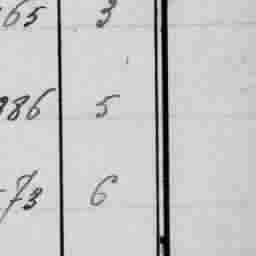 65 3
986 5
73 6